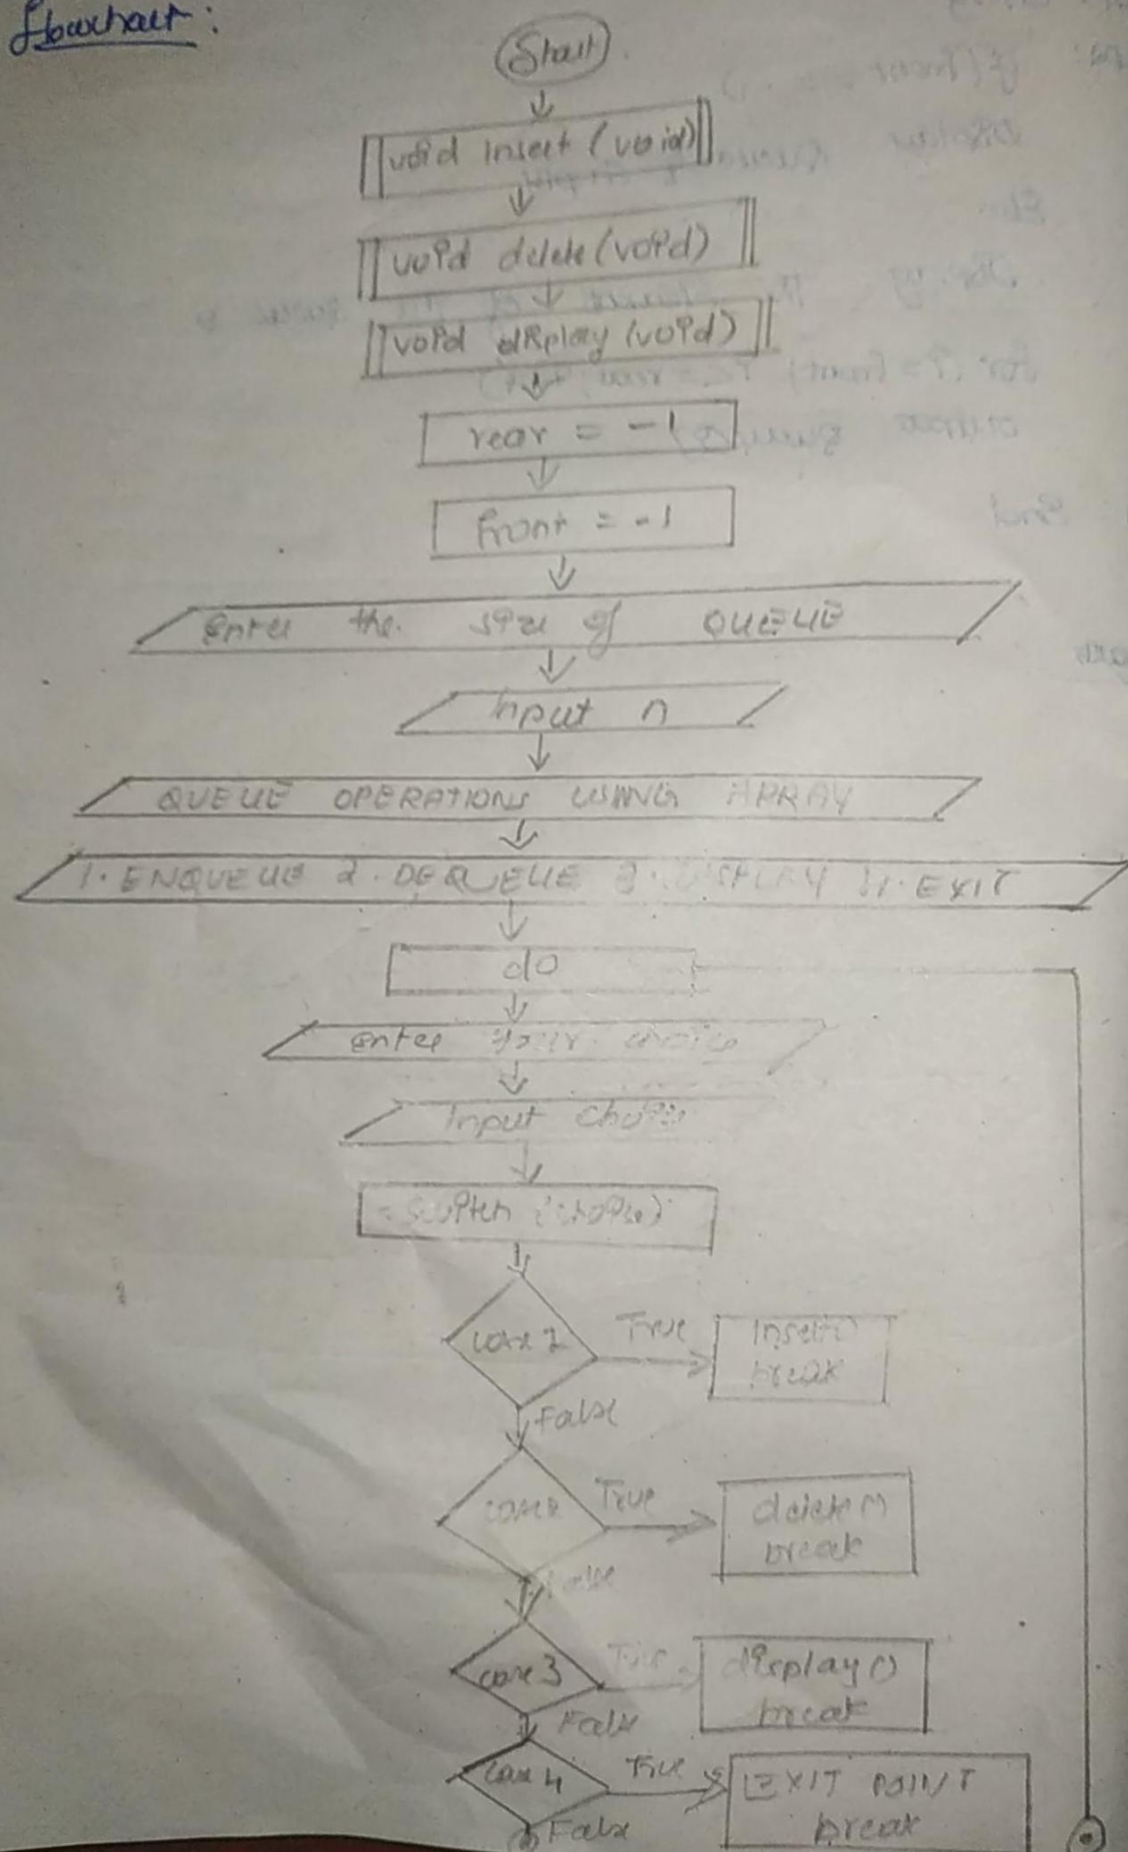 flowchart :
Start
void insert (void)
void delete (void)
void display (void)
rear = -1
front = -1
Enter the size of QUEUE
Input n
QUEUE OPERATIONS USING ARRAY
1. ENQUEUE 2. DEQUEUE 3. DISPLAY 4. EXIT
do
Enter your choice
Input choice
switch (choice)
case 1
True
insert()
break
False
case 2
True
delete()
break
False
case 3
True
display()
break
False
case 4
True
EXIT POINT
break
False